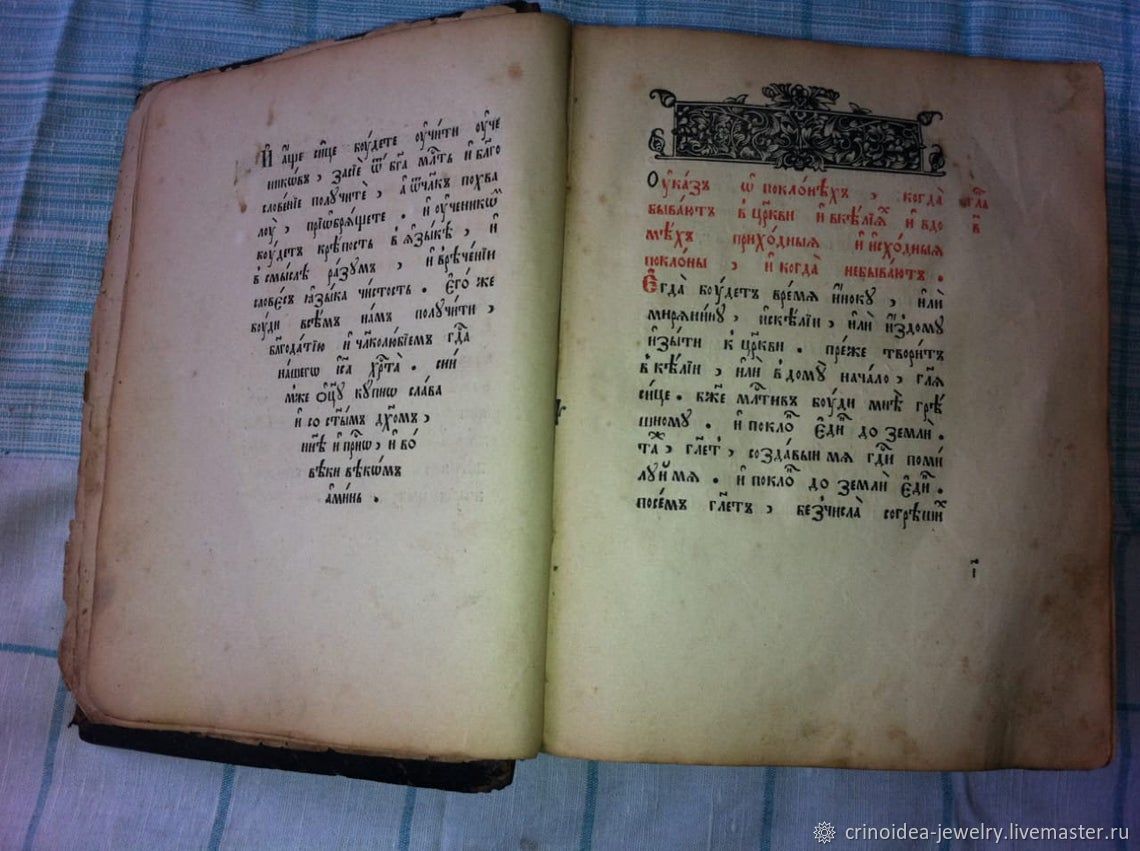 И҆ а҆́ще си́це бꙋ́дете ᲂу҆чи́ти ᲂу҆че
никѡ́въ , засїѐ ѿ бг҃а млⷭ҇ть и҆ блг҃о
слове́нїе полꙋчитѐ , а҆ ѿ чл҃къ похва
лꙋ̀ , приѡбрѧ́щете . и҆ ᲂу҆ченикѡⷨ
бꙋ́детъ крѣ́пость в ꙗ҆зы́кѣ , и҆
в смы́слѣ ра́зꙋмъ , и҆ в рече́нїи
слове́съ ꙗ҆зы́ка чи́стость . є҆го́ же
бꙋ́ди всѣ́мъ на́мъ полꙋчи́ти ,
блг҃ода́тїю и҆ чл҃колю́бїемъ гдⷭ҇а
на́шегѡ і҆с҃а хрⷭ҇та̀ . с ни́
мже ѻ҆ц҃ꙋ кꙋ́пнѡ сла́ва
и҆ со ст҃ы́мъ дх҃омъ ,
нн҃ѣ и҆ прⷭ҇нѡ , и҆ во́
вѣки вѣкѡ́мъ
а҆ми́нь .
Оу҆ка́зъ ѡ҆ покло́нѣхъ , когда̀
быва́ютъ в цр҃кви и҆ в ке́лїѧⷯ и҆ в до
мѣ́хъ прихо́дныѧ и҆ и҆схо́дныѧ
покло́ны , и҆ когда̀ не быва́ютъ .
гла
в҃
Є҆гда̀ бꙋ́детъ вре́мѧ и҆́нокꙋ , и҆лѝ
мирѧни́нꙋ , и҆с ке́лїи , и҆лѝ и҆з до́мꙋ
и҆зы́ти к цр҃кви . пре́же твори́тъ
в ке́лїи , и҆лѝ в до́мꙋ нача́ло , гл҃ѧ
си́це . бж҃е млⷭ҇тивъ бꙋ́ди мнѣ̀ грѣ́
шномꙋ . и҆ поклоⷩ҇ є҆ди́ⷩ до землѝ .
таⷤ , гл҃етъ , созда́выи мѧ гдⷭ҇и поми
лꙋ́й мѧ . и҆ поклоⷩ҇ до землѝ є҆ди́ⷩ .
посе́мъ гл҃етъ , без числа̀ согрѣши́ⷯ
і҃
crinoidea-jewelry.livemaster.ru